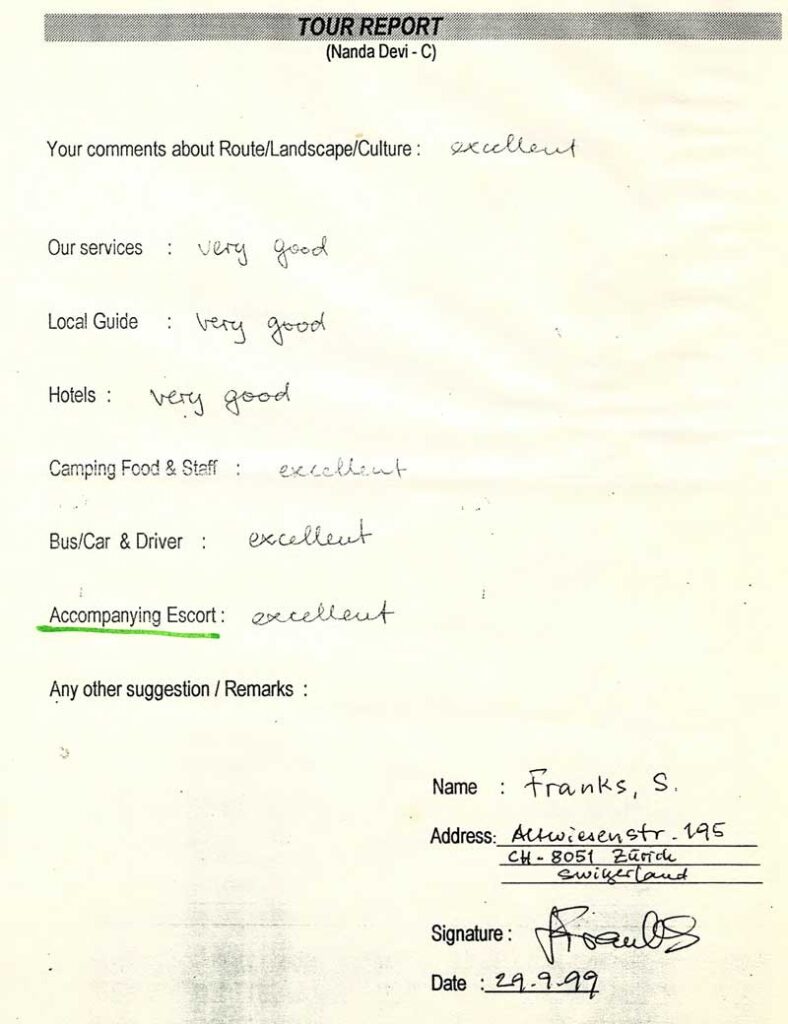 TOUR REPORT
(Nanda Devi - C)
Your comments about Route/Landscape/Culture : excellent
Our services : very good
Local Guide : very good
Hotels : very good
Camping Food & Staff : excellent
Bus/Car & Driver : excellent
Accompanying Escort : excellent
Any other suggestion / Remarks :
Name : Franks, S.
Address: Altwiesenstr. 195
CH - 8051 Zürich
Switzerland
Signature : Franks
Date : 29.9.99